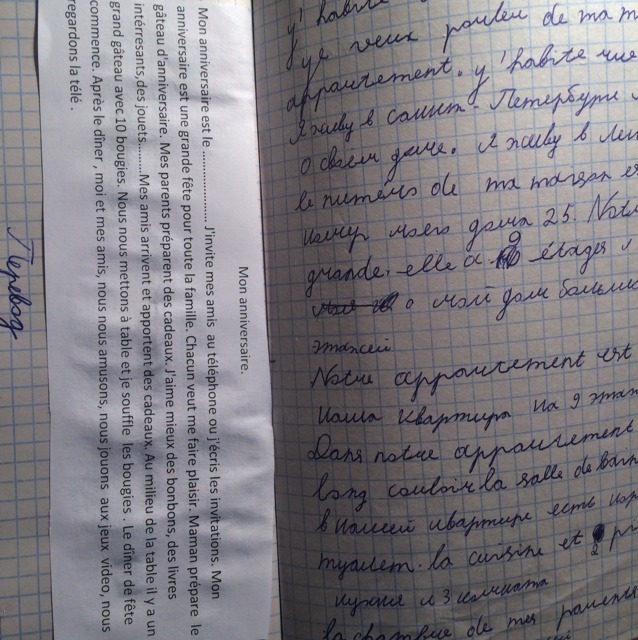 Mon anniversaire.
Mon anniversaire est le ..................... J'invite mes amis au téléphone ou j'écris les invitations. Mon
anniversaire est une grande fête pour toute la famille. Chacun veut me faire plaisir. Maman prépare le
gâteau d'anniversaire. Mes parents préparent des cadeaux. J'aime mieux des bonbons, des livres
intérresants,des jouets.........Mes amis arrivent et apportent des cadeaux. Au milieu de la table il y a un
grand gâteau avec 10 bougies. Nous nous mettons à table et je souffle les bougies . Le dîner de fête
commence. Après le dîner , moi et mes amis, nous nous amusons, nous jouons aux jeux video, nous
regardons la télé .
Перевод
y'habite
ye veux parler de ma m
appartement. y'habite rue
Я живу в Санкт-Петербурге
о своём доме. Я живу в Лен
le numéro de ma maison e
номер моего дома 25. Notre
grande. elle a 9 étages
мой дом больш
этажей
Notre appartement est
наша квартира на 9 этаж
Dans notre appartement
long couloir la salle de bain
в нашей квартире есть кор
туалет. la cuisine et 2 pi
кухня и 3 комната
la chambre de mes parents